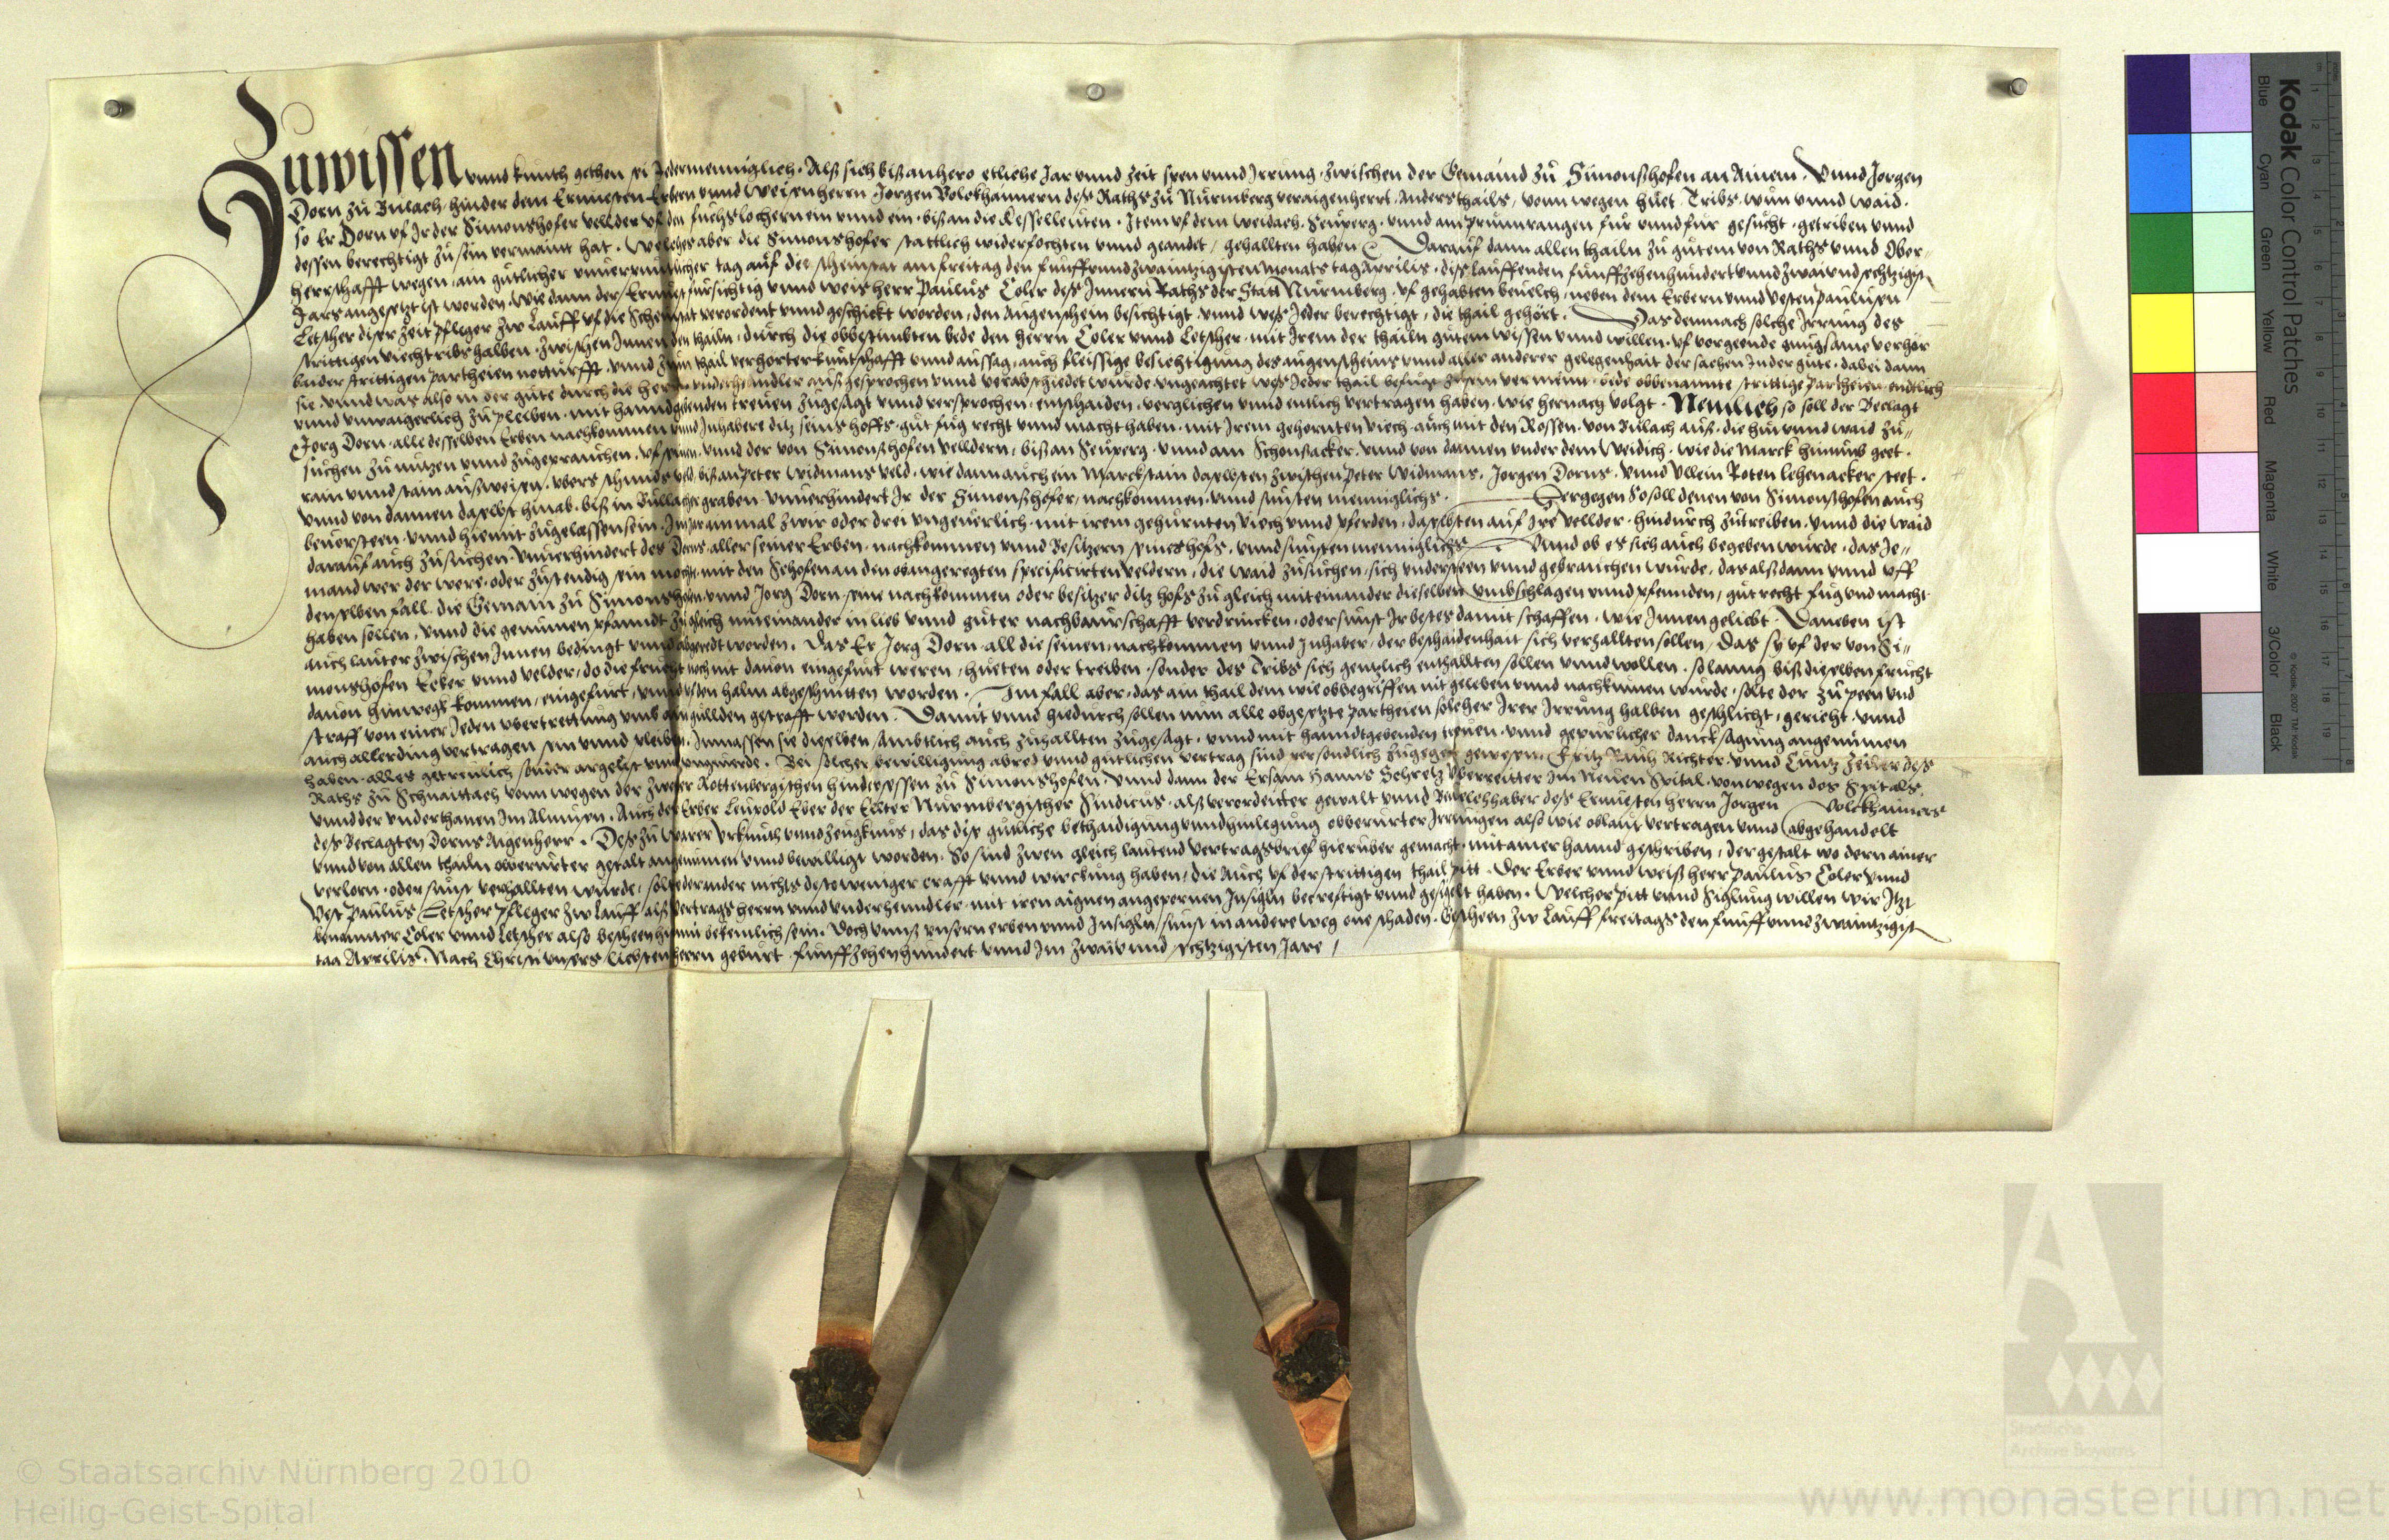 Zuwissen vnnd kunth gethon sei Jedermenniglich. Alß sich bißanhero etliche Jar vnnd Zeit spen vnnd Irrung, zwischen der Gemaind zu Simonßhofen an Ainem. Vnnd Jorgen
Dorn zu Bulach, hinder dem Ernuesten Erbern vnnd Weisen herrn Jorgen Volckhaimern deß Raths zu Nurmberg veraigenherrt, Andersthails, vonn wegen huet, Tribs, wun vnnd waid.
so Er Dorn vf Ir der Simonshofer vellder vf den fuchslochern ein vnnd ein, biß an die Kesselleuten. Item vf dem Weidach, Seuperg, vnnd am prunnrangen fur vnnd fur gesucht, getriben vnnd
dessen berechtigt zu sein vermaint hat. Welches aber die Simonshofer stattlich widerfochten vnnd geandet, gehallten haben. Darauf dann allen thailn zu gutem von Raths vnnd Ober-
herrschafft wegen, ain gutlicher vnuerruntlicher tag auf der scheinstat am freitag den funff vnnd zwaintzigisten Monats tag Aprilis, diß lauffenden funffzehenhundert vnnd zwai vnd sechtzigist
Jars angesetzt ist worden. Wie dann der Ernuest fursichtig vnnd weis herr Paulus Coler deß Innern Raths der Statt Nurmberg, vf gehabten beuelch, neben dem Erbern vnnd Vesten Paulusen
Letscher diser Zeit Pfleger zw Lauff vf die Scheinstat verordent vnnd geschickt worden, den Augenschein besichtigt, vnnd weß Jeder berechtigt, die thail gehört. Das demnach solche Irrung des
strittigen viechtribs halben, zwischen Innen den thailn, durch die obbestimbten bede den herrn Coler vnnd Letscher, mit Irem der thailn gutem wissen vnnd willen, vf vorgeende gnugsame verhör
beder strittigen partheien notturfft, vnnd zum thail verhorter kuntschafft vnnd aussag, auch fleissige besichtigung des augenscheins vnnd aller anderer gelegenhait der sachen In der gute, dabei dann
sie, vnnd was also in der gute durch die herrn vnderhandler außgesprochen vnnd verabschiedet wurde, vngeachtet weß Jeder thail befugt zu sein vermeint, bede obbenannte strittige partheien endtlich
vnnd vnwaigerlich zu pleiben, mit hanndgebenden treuen zugesagt vnnd versprochen, entschaiden, verglichen vnnd entlich vertragen haben, wie hernach volgt. Nemlich so soll der Beclagt
Jorg Dorn, alle desselben Erben nachkommen vnnd Inhabere ditz seins hoffs, gut fug recht vnnd macht haben, mit Irem gehornten viech, auch mit den Rossen, von Bulach auß, die hut vnnd waid zu-
suchen zu nutzen vnnd zugeprauchen, vf seinen, vnnd der von Simonshofen velldern, biß an Seuperg, vnnd am Schonsacker, vnnd von dannen vnder dem Weidich, wie die Marck hinumb geet,
rain vnnd stain außweisen, vbers schmids veld, biß an Peter Widmans veld, wie dann auch ein Marckstain daselbsten zwischen Peter Widmans, Jorgen Dorns, vnnd Vllein Roten lehenacker steet.
vnnd von dannen daselbst hinab, biß in Bullacher graben vnuerhindert Ir der Simonßhofer, nachkommen, vnnd sunsten menniglichs. Hergegen So soll denen von Simonßhofen auch
beuorsteen, vnnd hiemit zugelassen sein, Im Jar ainmal zwir oder drei vngeuerlich, mit irem gehurnten viech vnnd pferden, daselbsten auf Ire vellder, hindurch zutreiben, vnnd die waid
darauf auch zusuchen, vnuerhindert des Dorns, aller seiner Erben, nachkommen vnnd Besitzern seines hofs, vnnd sunsten menniglichs. Vnnd ob es sich auch begeben wurde, das Je-
mand wer der were, oder zustendig sein mocht, mit den Schofen an den obangeregten specificirten veldern, die waid zusuchen, sich vndersteen vnnd gebrauchen wurde, das alßdann vnnd vff
denselben fall, die Gemain zu Simonshofen, vnnd Jorg Dorn, seine nachkommen oder besitzer ditz hofs zu gleich miteinander dieselben vmbschlagen vnnd pfennden, gut recht fug vnd macht
haben sollen, vnnd die genumen pfanndt zugleich miteinander in lieb vnnd guter nachbaurschafft verdrincken, oder sunst Ir bestes damit schaffen, wie Innen geliebt. Daneben ist
auch lauter zwischen Innen bedingt vnnd abgeredt worden, Das Er Jorg Dorn, all die seinen, nachkommen vnnd Inhaber, der beschaidenhait sich verhallten sollen, Das sy vf der von Si-
monshofen Ecker vnnd velder, do die frucht noch nit dauon eingefurt weren, hueten oder treiben, sonder des Tribs sich gentzlich enthallten sollen vnnd wollen, so lanng biß dieselben frucht
dauon hinwegk kommen, eingefurt, vnnd vf den halm abgeschnitten worden. Im fall aber, das ain thail dem wie obbegriffen nit geleben vnnd nachkumen wurde, solte der zu peen vnd
straff von einer Jeden vbertrettung vmb ain gullden gestrafft werden. Damit vnnd hiedurch sollen nun alle obgesetzte partheien solcher Irer Irrung halben geschlicht, gericht, vnnd
auch allerding vertragen sein vnnd pleiben, Inmassen sie dieselben samttlich auch zuhallten zugesagt, vnnd mit hanndtgebenden treuen, vnnd geburlicher dancksagung angenumen
haben, alles getreulich sonder argelist vnnd vngeuerde. Bei solcher bewilligung abred vnnd gutlichen vertrag sind persondlich zugegen gewesen, Fritz Rauh Richter, vnnd Cuntz Zeidler deß
Raths zu Schnaittach vonn wegen der zweyer Rottenbergischen hindersessen zu Simonshofen, vnnd dann der Ersam Hanns Schretz Vberreitter Im Neuen Spital, von wegen des Spitals,
vnnd der vnderthanen Im Almusen, Auch der Erber Leupold Eber der Ellter Nurmbergischer Sindicus, alß verordenter gewalt vnnd Beuelchhaber deß Ernuesten herrn Jorgen Volckhaimers
deß Beclagten Dorns Aigenherr. Deß zu warer Vrkunth vnnd Zeugknus, das diß gutliche bethaidigung vnnd hinlegung obberurter Irrungen also wie oblaut vertragen vnnd abgehandelt
vnnd von allen thailn obberurter gestalt angenumen vnnd bewilligt worden. So sind zwen gleich lautend Vertragsbrief hieruber gemacht, mit ainer hannd geschriben, dergestalt wo dern ainer
verlorn, oder sunst verhallten wurde, soll yeder ander nichts destoweniger crafft vnnd wirckung haben, die Auch vf der strittigen thail pitt, Der Erber vnnd weiß herr Paulus Coler vnnd
Vest Paulus Letscher Pfleger zw Lauff, alß vertragsherrn vnnd vnderhenndler, mit iren aignen angepornen Insigln becrefftigt vnnd gesigelt haben. Welcher pitt vnnd Siglung willen wir Itzt
benannter Coler vnnd Letscher also bescheen hiemit bekenntlich sein. Doch vnnß vnsern erben vnnd Insigln, sunst in andere weg one schaden. Gescheen zw Lauff freitags den funff vnnd zwaintzigist
tag Aprilis. Nach Christi vnsers Liebsten herrn geburt, funffzehenhundert vnnd Im zwai vnnd sechtzigisten Jare.
Kodak Color Control Patches
Blue Cyan Green Yellow Red Magenta White 3/Color Black
© Kodak, 2007 TM: Kodak
Staatliche
Archive Bayerns
© Staatsarchiv Nürnberg 2010
Heilig-Geist-Spital
www.monasterium.net